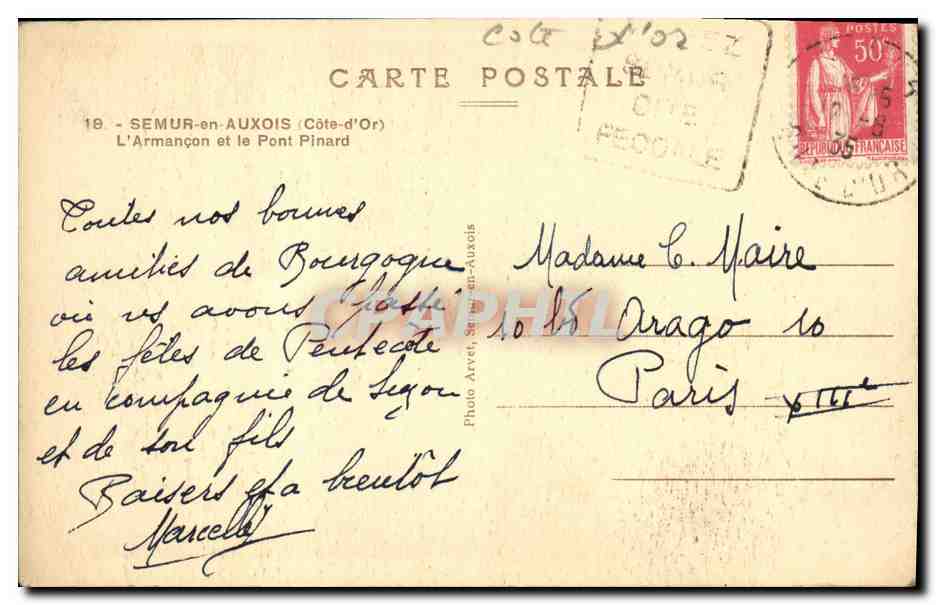 Cote d'or
CARTE POSTALE
18. - SEMUR-en-AUXOIS (Côte-d'Or)
L'Armançon et le Pont Pinard
CITE
FEODALE
POSTES
50c
REPUBLIQUE FRANÇAISE
35
Toutes nos bonnes
amitiés de Bourgogne
où ns avons passé
les fêtes de Pentecote
en compagnie de
et de son fils
Baisers et a bientôt
Photo Arvet, Semur-en-Auxois
Madame C. Maire
10 bd Arago 10
Paris XIIIe
CPAPHIL